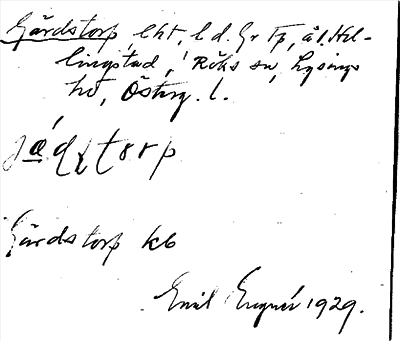 Gärdstorp, lht, l.d. Gr Tp, å l. Hel-
lingstad, i Röks sn, Lysings
hd, Österg. l.
jädstorp
Gärdstorp kb
Emil 1929.